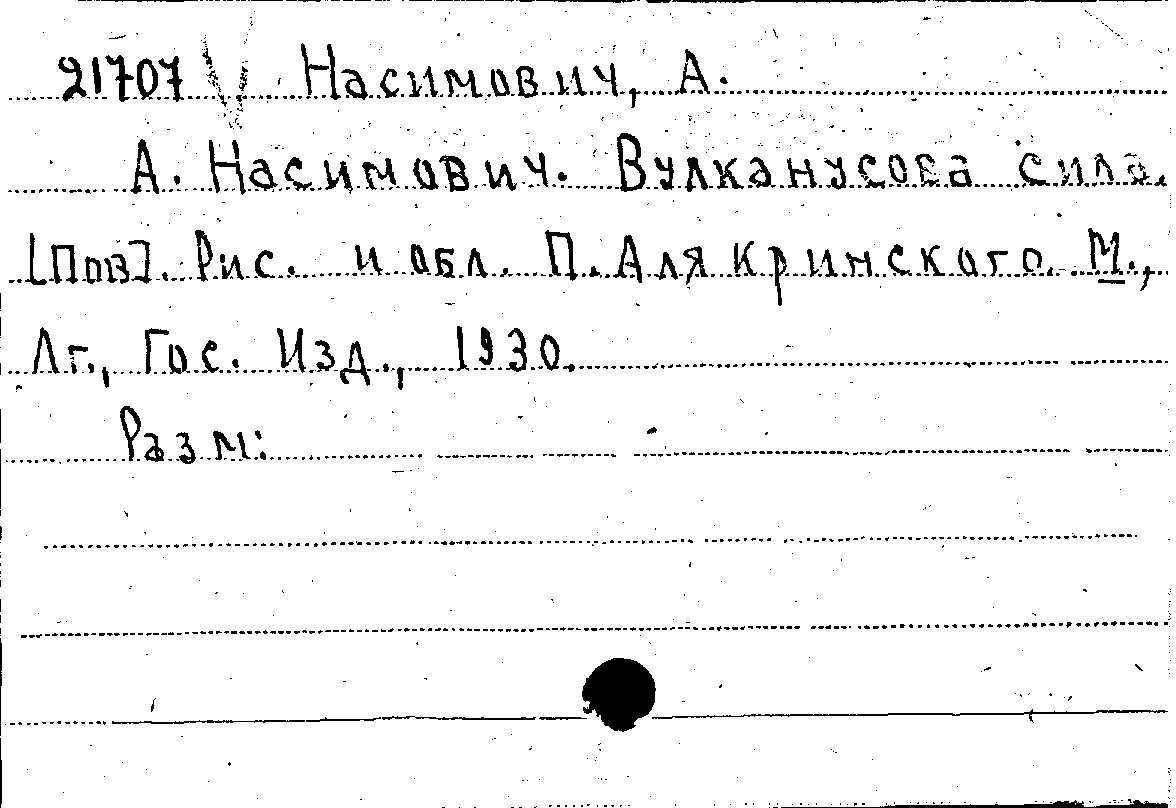 21707 V Насимович, А.
А. Насимович. Вулканусова сила.
[Пов]. Рис. и обл. П. Алякринского. М.,
Лг., Гос. Изд., 1930.
Разм: